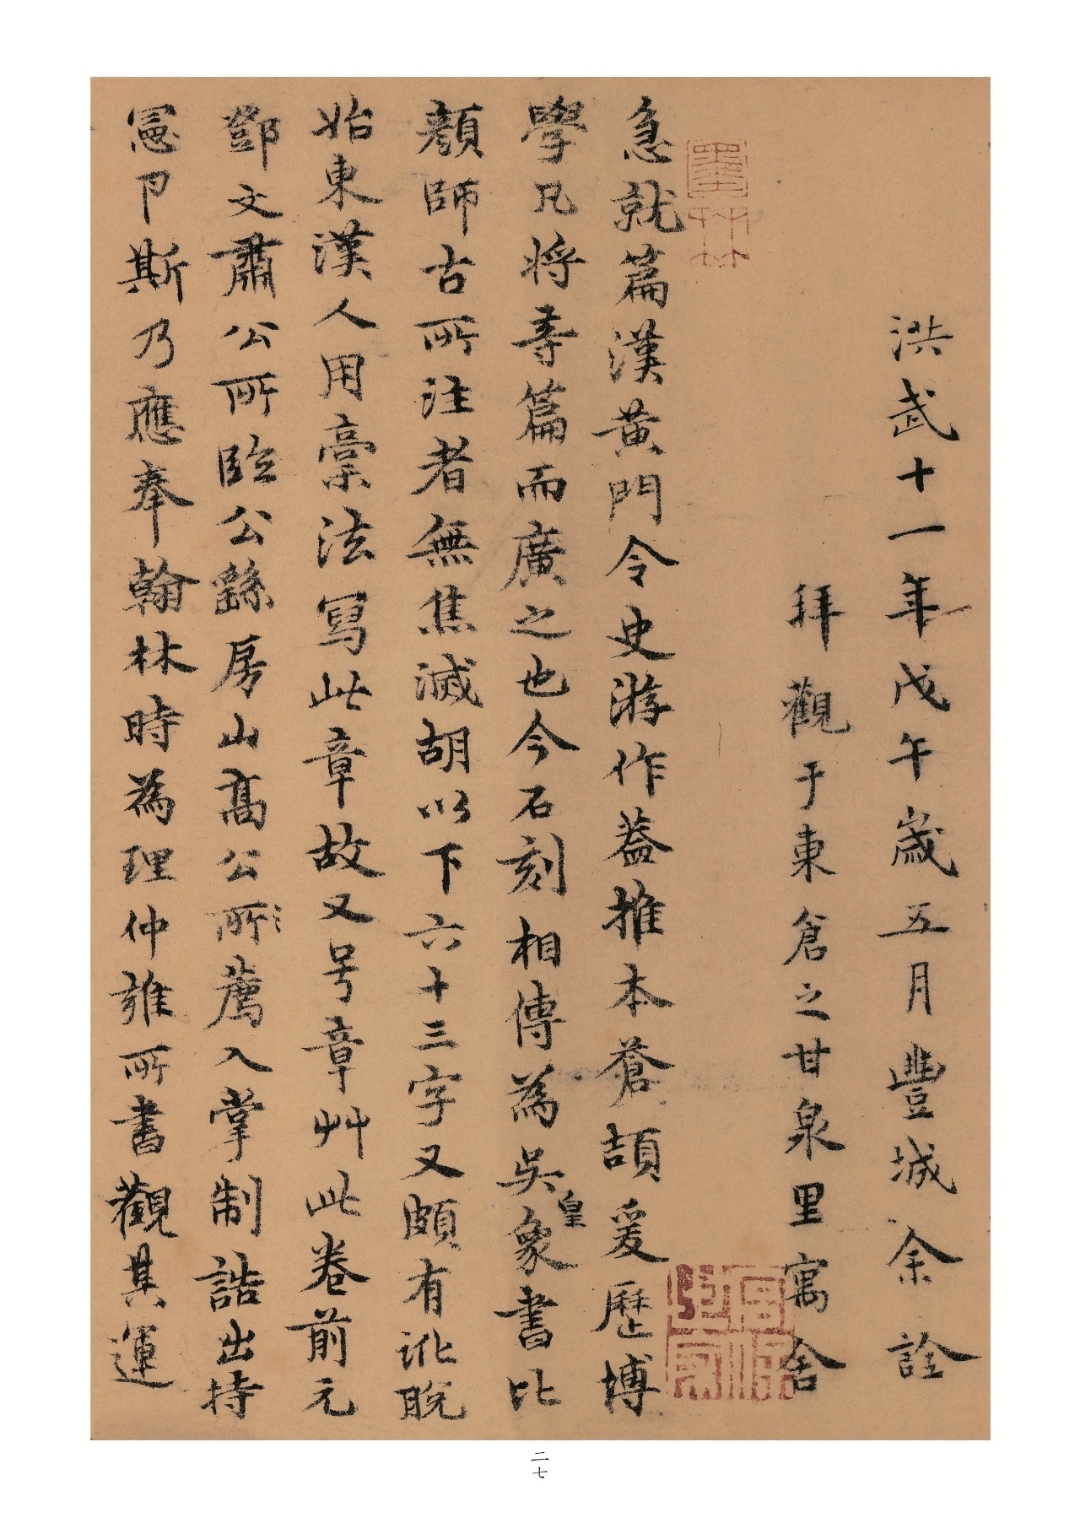 洪武十一年戊午歲五月豐城余詮
拜觀于東倉之甘泉里寓舍
急就篇漢黄門令史游作蓋推本蒼頡爰歷博
學凡将等篇而廣之也今石刻相傳為吳皇象書比
顔師古所注者無焦滅胡以下六十三字又頗有訛脫
始東漢人用稾法寫此章故又号章艸此卷前元
鄧文肅公所臨公繇房山髙公所薦入掌制誥出持
憲卩斯乃應奉翰林時為理仲雍所書觀其運
墨林
二七